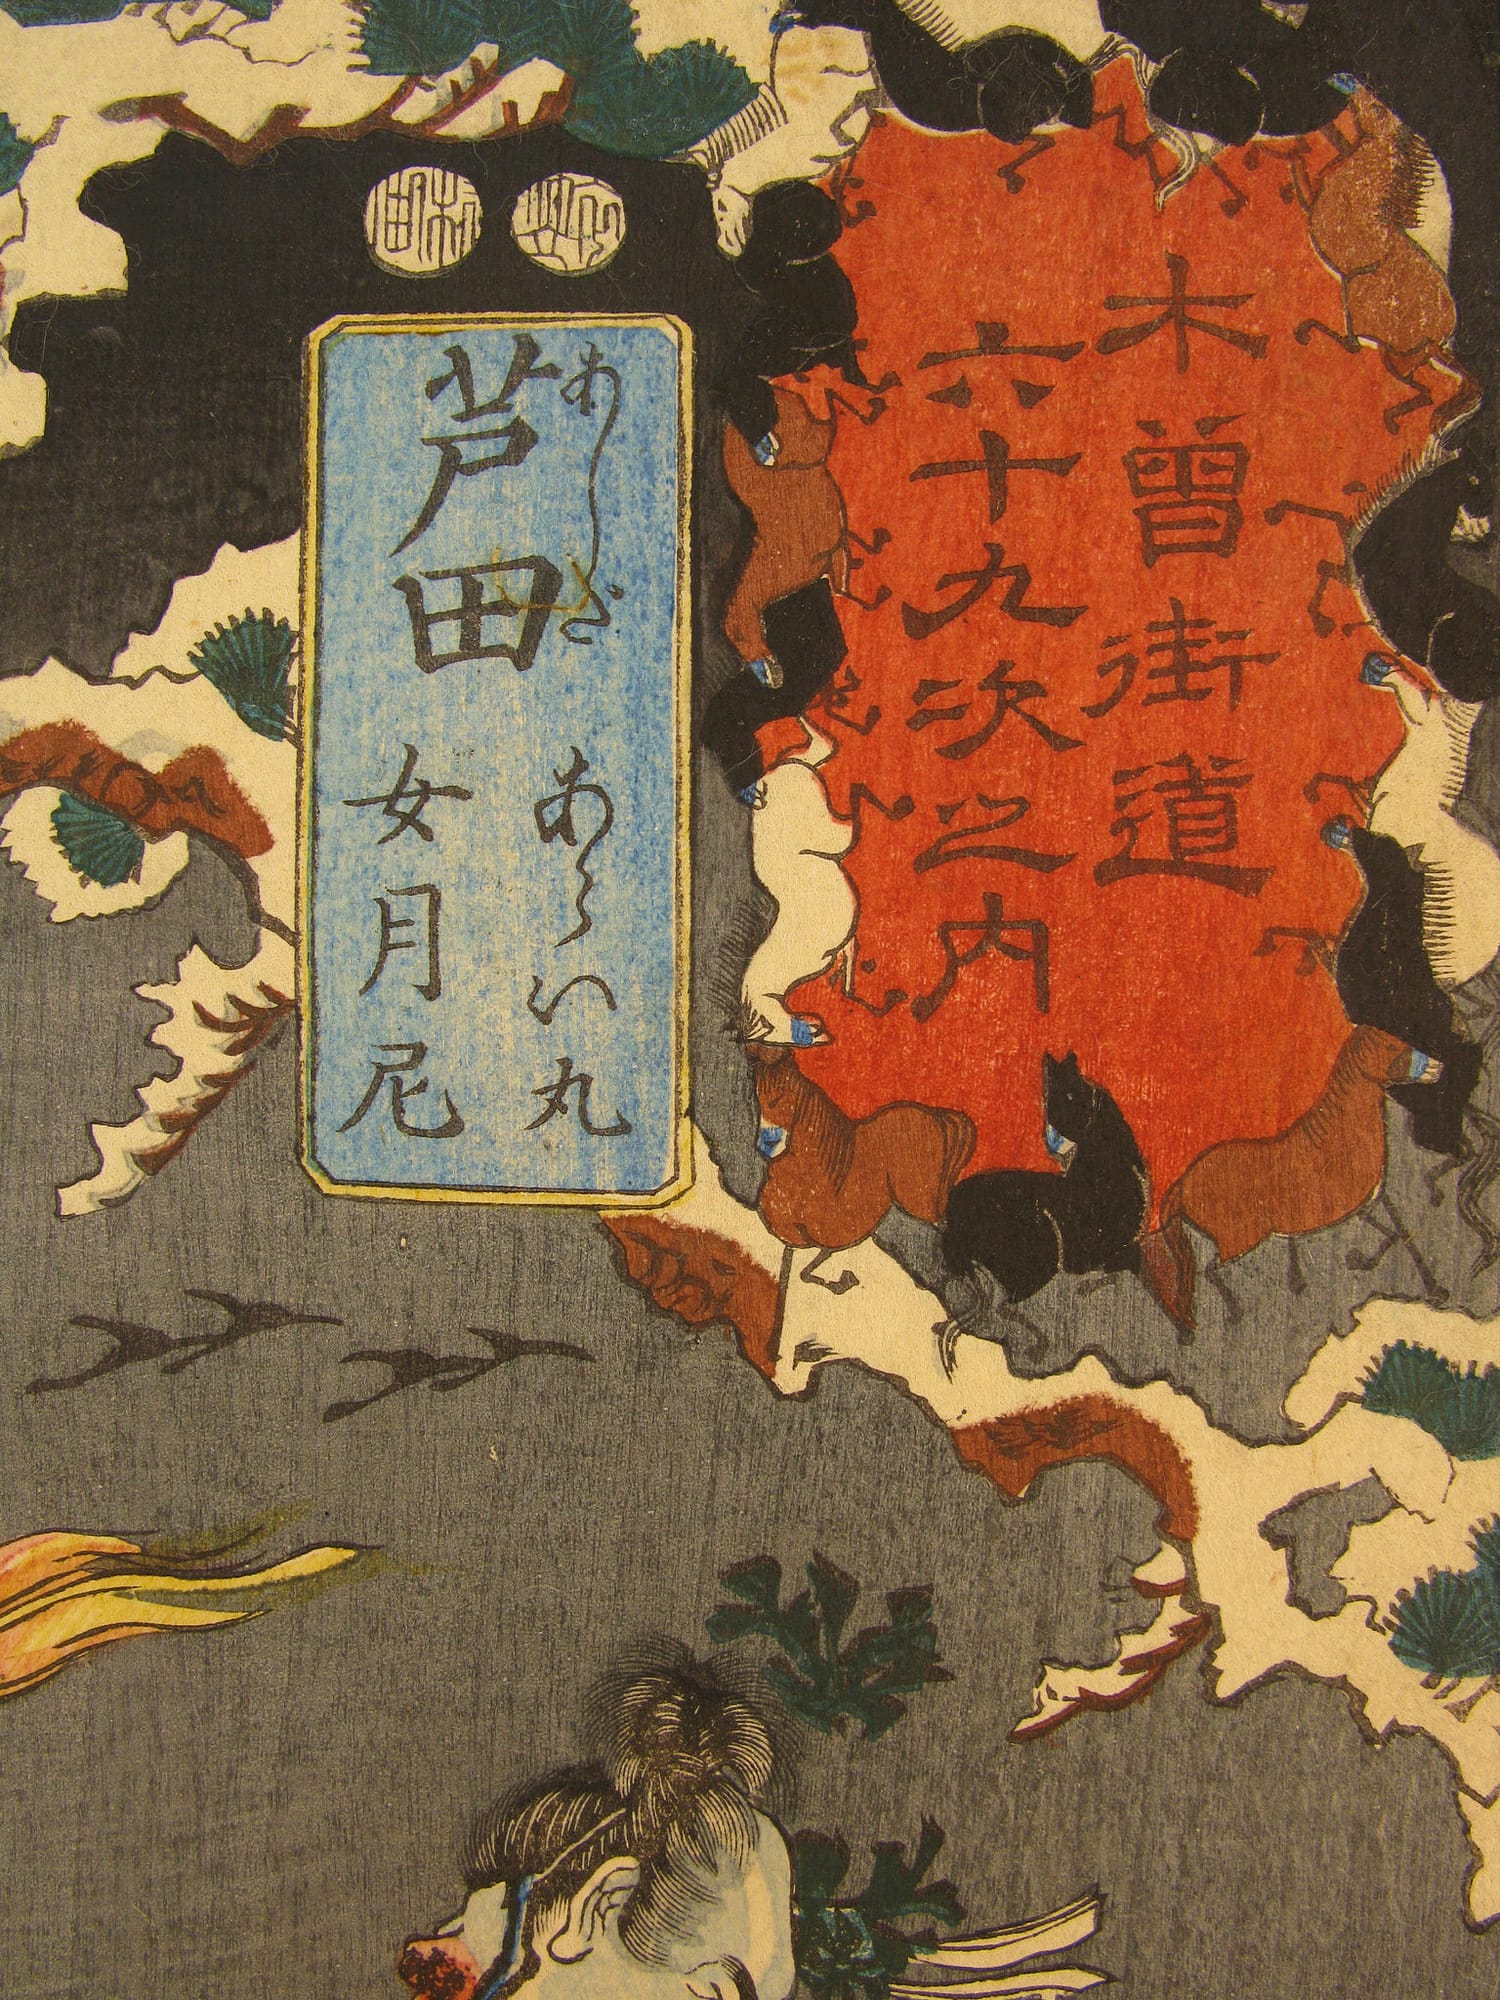 木曽街道
六十九次之内
芦田
あしだ
あらい丸
女月尼